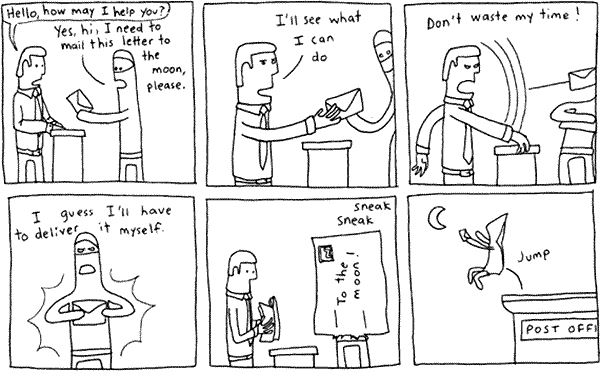 Hello, how may I help you?
Yes, hi, I need to
mail this letter to
the
moon,
please.
I'll see what
I can
do
Don't waste my time!
I guess I'll have
to deliver it myself.
sneak
sneak
To the
moon!
Jump
POST OFFI